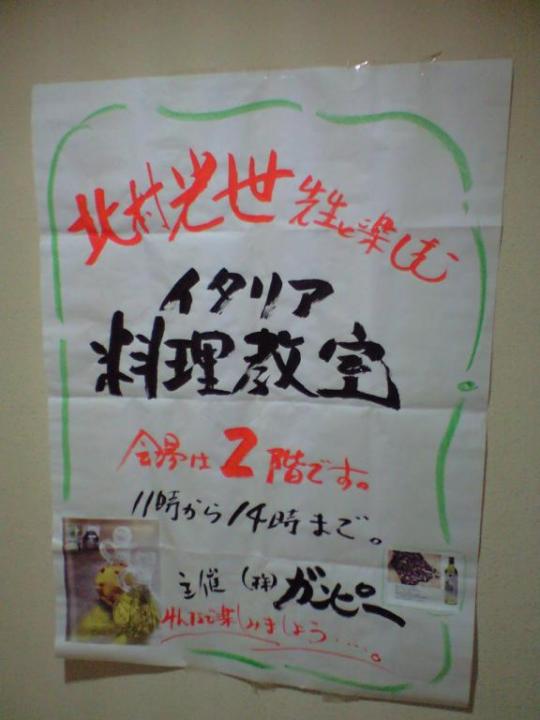 北村光世先生と楽しむ
イタリア
料理教室
会場は2階です。
11時から14時まで。
主催 (株)ガンピー
みんなで楽しみましょう.....。